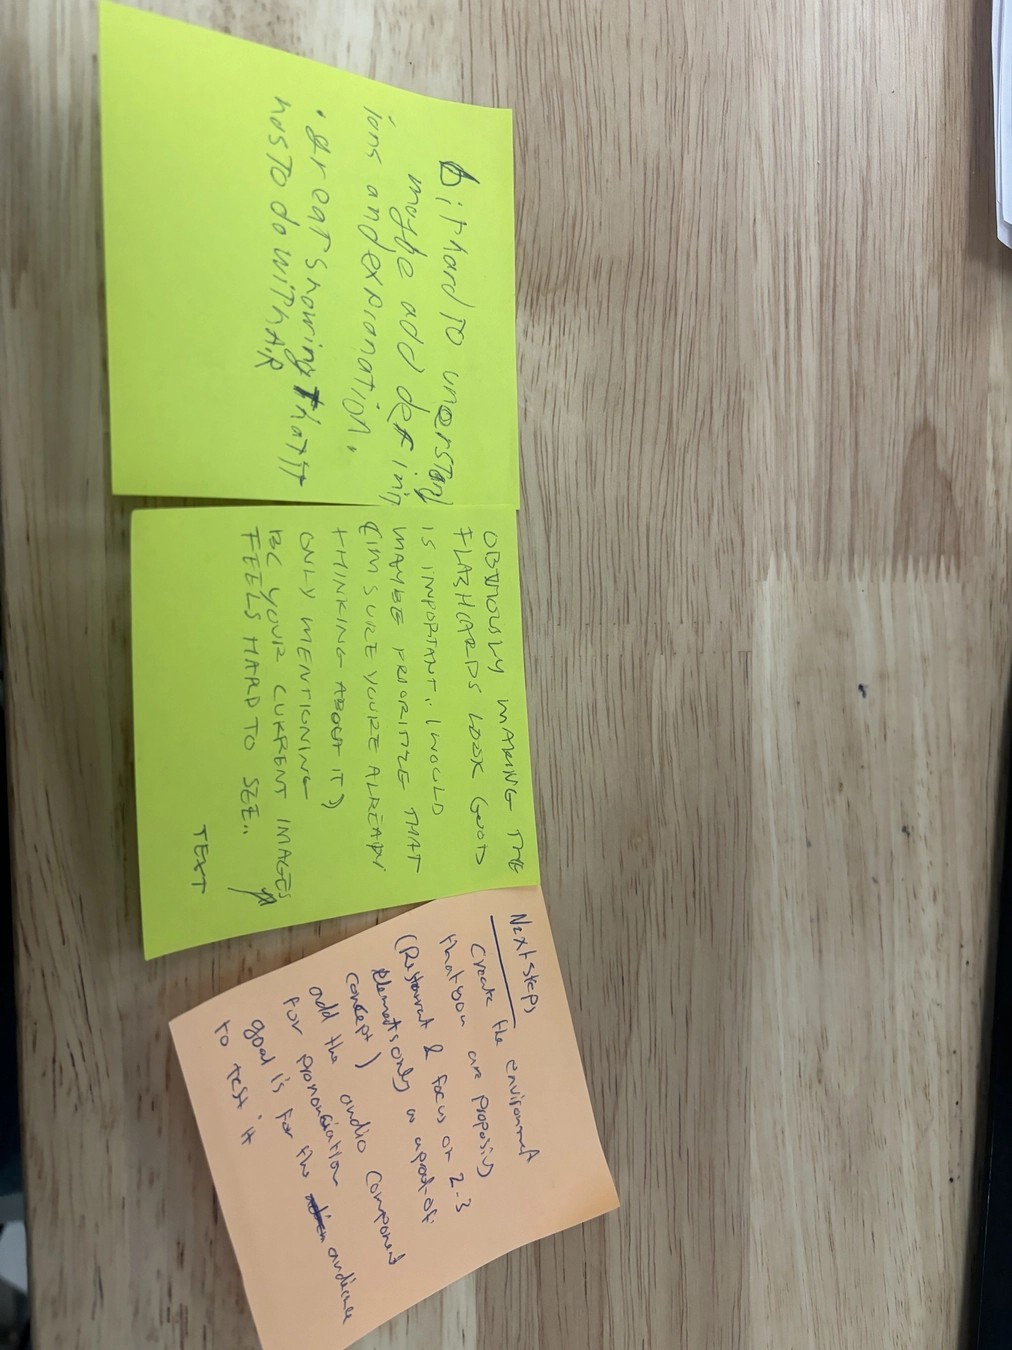 bit hard to understand
maybe add definit
ions and explanation.
• great showing that it
has to do with AR
OBVIOUSLY MAKING THE
FLASHCARDS LOOK GOOD
IS IMPORTANT.. I WOULD
MAYBE PRIORITIZE THAT
(IM SURE YOURE ALREADY
THINKING ABOUT IT)
ONLY MENTIONING
BC YOUR CURRENT IMAGES
FEELS HARD TO SEE..
TEXT
Next steps
Create the environment
that you are proposing
(Restaurant & focus on 2-3
elements only as a proof of
concept)
add the audio component
for pronunciation
goal is for the audience
to test it